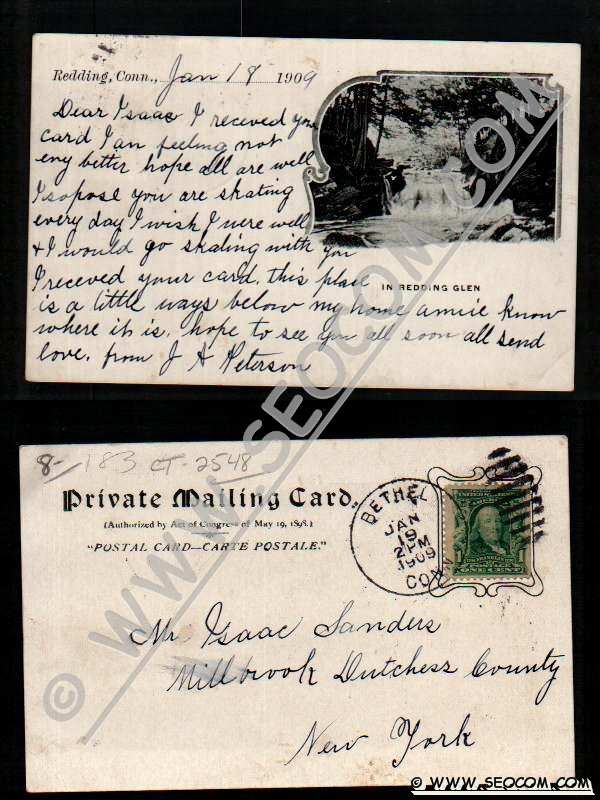 Redding, Conn., Jan 18 1909
Dear Isaac I receved your
card I an feeling not
eny better hope all are well
I sopose you are skating
every day I wish I were well
& I would go skating with you
I receved your card, this place
IN REDDING GLEN
is a little ways below my home amie know
where it is. hope to see you all soon all send
love. from J A Peterson
8- 183 CT-2548
Private Mailing Card.
(Authorized by Act of Congress of May 19, 1898.)
"POSTAL CARD—CARTE POSTALE."
BETHEL
JAN
19
2 PM
1909
CONN
POSTAGE
ONE CENT
Mr Isaac Sanders
Millbrook Dutchess County
New York
© WWW.SEOCOM.COM
© WWW.SEOCOM.COM